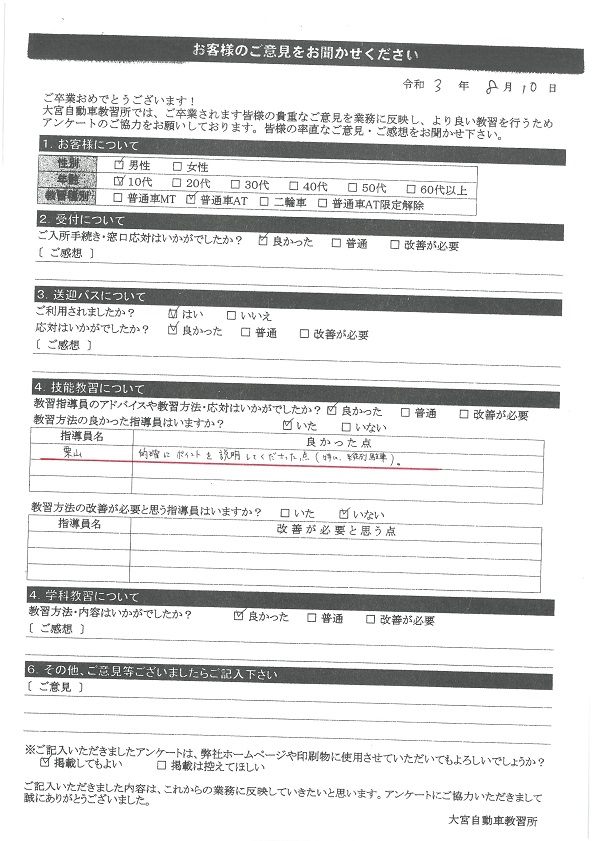 お客様のご意見をお聞かせください
令和 3 年 8月 10 日
ご卒業おめでとうございます！
大宮自動車教習所では、ご卒業されます皆様の貴重なご意見を業務に反映し、より良い教習を行うため
アンケートのご協力をお願いしております。皆様の率直なご意見・ご感想をお聞かせ下さい。
1. お客様について
性別 ☑ 男性 □ 女性
年齢 ☑ 10代 □ 20代 □ 30代 □ 40代 □ 50代 □ 60代以上
教習種別 □ 普通車MT ☑ 普通車AT □ 二輪車 □ 普通車AT限定解除
2. 受付について
ご入所手続き・窓口応対はいかがでしたか？ ☑ 良かった □ 普通 □ 改善が必要
〔 ご感想 〕
3. 送迎バスについて
ご利用されましたか？ ☑ はい □ いいえ
応対はいかがでしたか？ ☑ 良かった □ 普通 □ 改善が必要
〔 ご感想 〕
4. 技能教習について
教習指導員のアドバイスや教習方法・応対はいかがでしたか？ ☑ 良かった □ 普通 □ 改善が必要
教習方法の良かった指導員はいますか？ ☑ いた □ いない
指導員名 良かった点
栗山 的確にポイントを説明してくださった点(特に、縦列駐車)。
教習方法の改善が必要と思う指導員はいますか？ □ いた ☑ いない
指導員名 改善が必要と思う点
4. 学科教習について
教習方法・内容はいかがでしたか？ ☑ 良かった □ 普通 □ 改善が必要
〔 ご感想 〕
6. その他、ご意見等ございましたらご記入下さい
〔 ご意見 〕
※ご記入いただきましたアンケートは、弊社ホームページや印刷物に使用させていただいてもよろしいでしょうか？
☑ 掲載してもよい □ 掲載は控えてほしい
ご記入いただきました内容は、これからの業務に反映していきたいと思います。アンケートにご協力いただきまして
誠にありがとうございました。
大宮自動車教習所